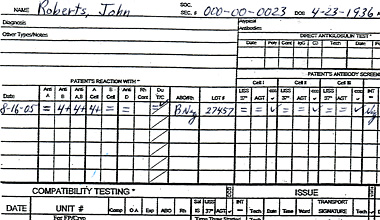 NAME Roberts, John SOC. SEC. # 000-00-0023 DOB 4-23-1936
Other Types/Notes
Antibodies:
DIRECT ANTIGLOBULIN TEST *
Date Poly Cont IgG C3 Tech Date
PATIENT'S REACTION WITH * PATIENT'S ANTIBODY SCREEN
Cell I Cell II
Date Anti A Anti B Anti A,B A Cell B Cell Anti D Rh Cont Du T/C ABO/Rh LOT # LISS 37° AGT LISS 37° AGT LISS 37° AGT INT
8-16-05 = 4+ 4+ 4+ = = B Neg 27457 = = ✓ = = ✓ = = ✓ Neg
COMPATIBILITY TESTING * ISSUE
DATE UNIT # Comp O A Exp ABO Rh Sal IS LISS 37° AGT INT Tech Date Time Ward TRANSPORT SIGNATURE Tech Date
For FFP/Cryo Time Thaw Started